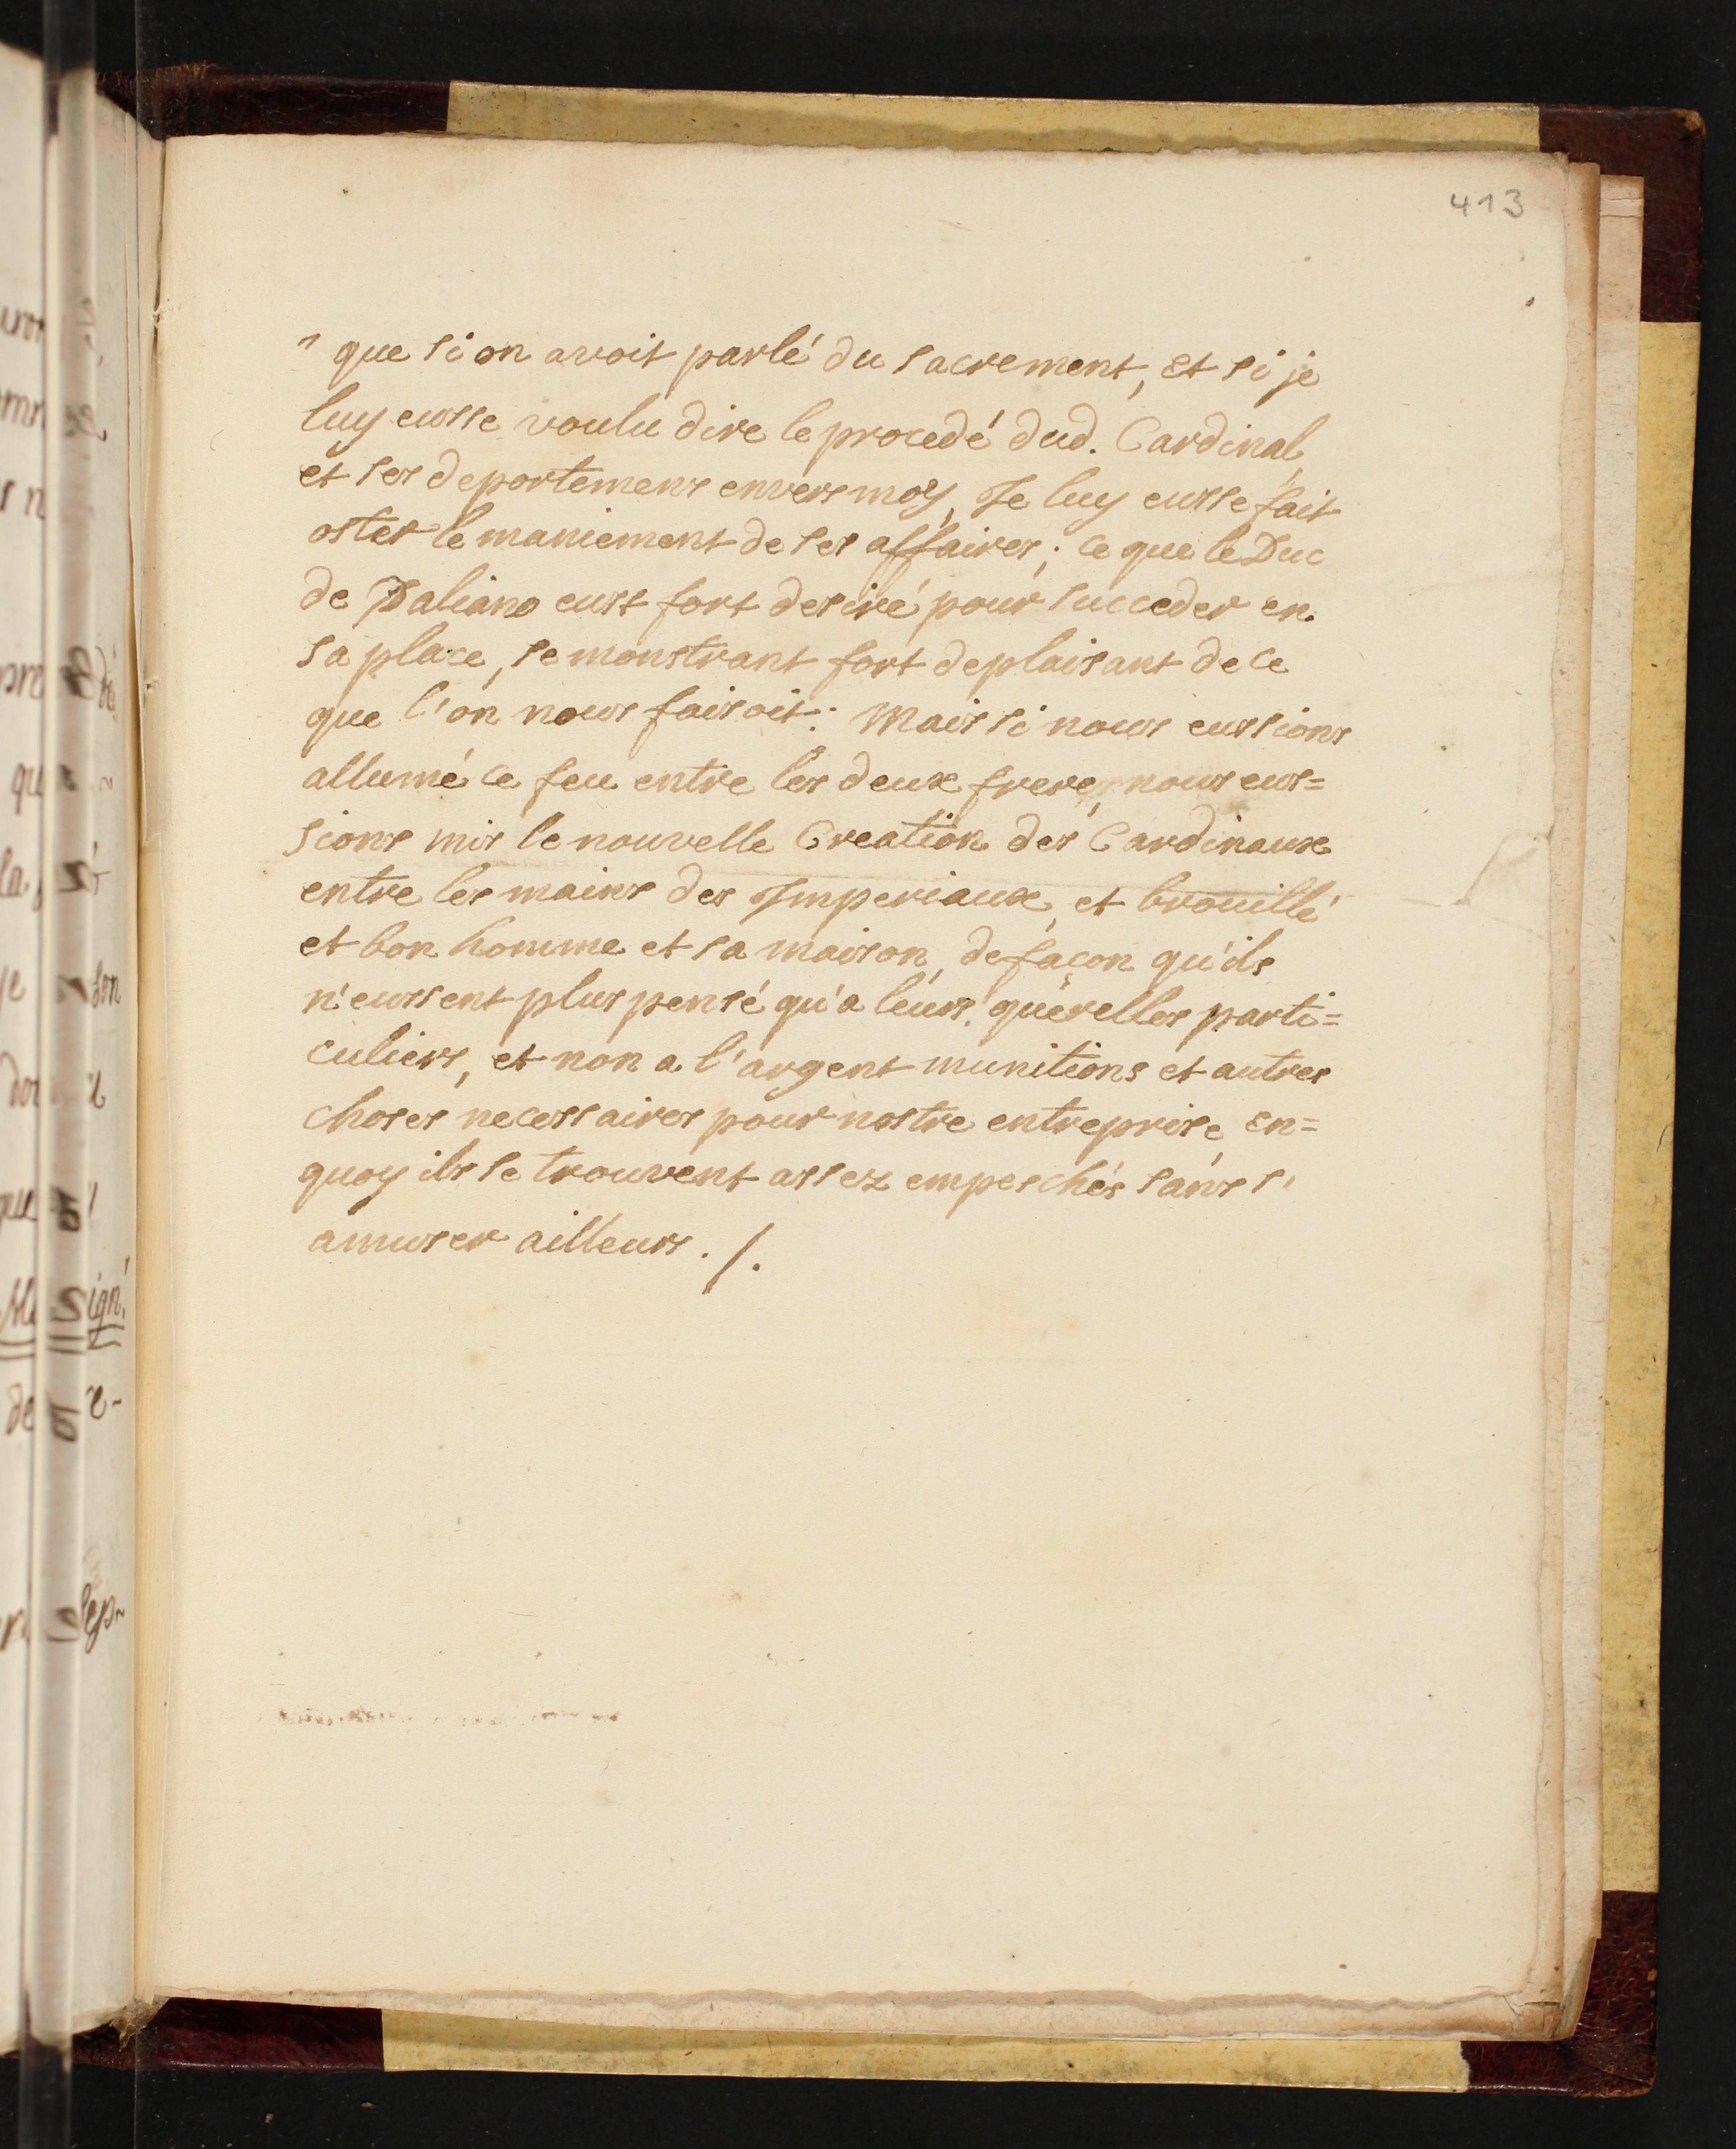 413
" que si on avoit parlé du sacrement, et si je
luy eusse voulu dire le procedé dud. Cardinal,
et ses deportemens envers moy, Je luy eusse fait
oster le maniement de ses affaires; ce que le Duc
de Paliano eust fort desiré pour succeder en
sa place, se monstrant fort deplaisant de ce
que l'on nous faisoit: Mais si nous eussions
allumé ce feu entre les deux freres, nous eus=
sions mis le nouvelle Creation des Cardinaux
entre les mains des Imperiaux, et brouillé
et bon homme et sa maison, de façon qu'ils
n'eussent plus pensé qu'a leurs querelles parti=
culiers, et non a l'argent munitions et autres
choses necessaires pour nostre entreprise, en=
quoy ils se trouvent assez empeschés sans s'
amuser ailleurs. /.